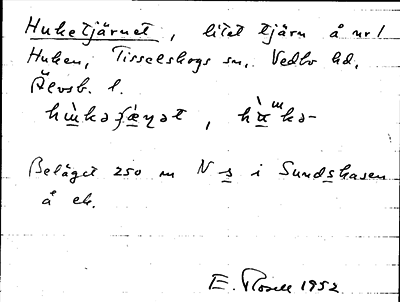 Huketjärnet, litet tjärn å nr 1
Huken, Tisselskogs sn, Vedbo hd,
Älvsb. l.
hɯ̀kəʃæ̀ŋət, hɯ̀kə-
Beläget 250 m N s i Sundshasen
å ek.
E. Rosell 1952